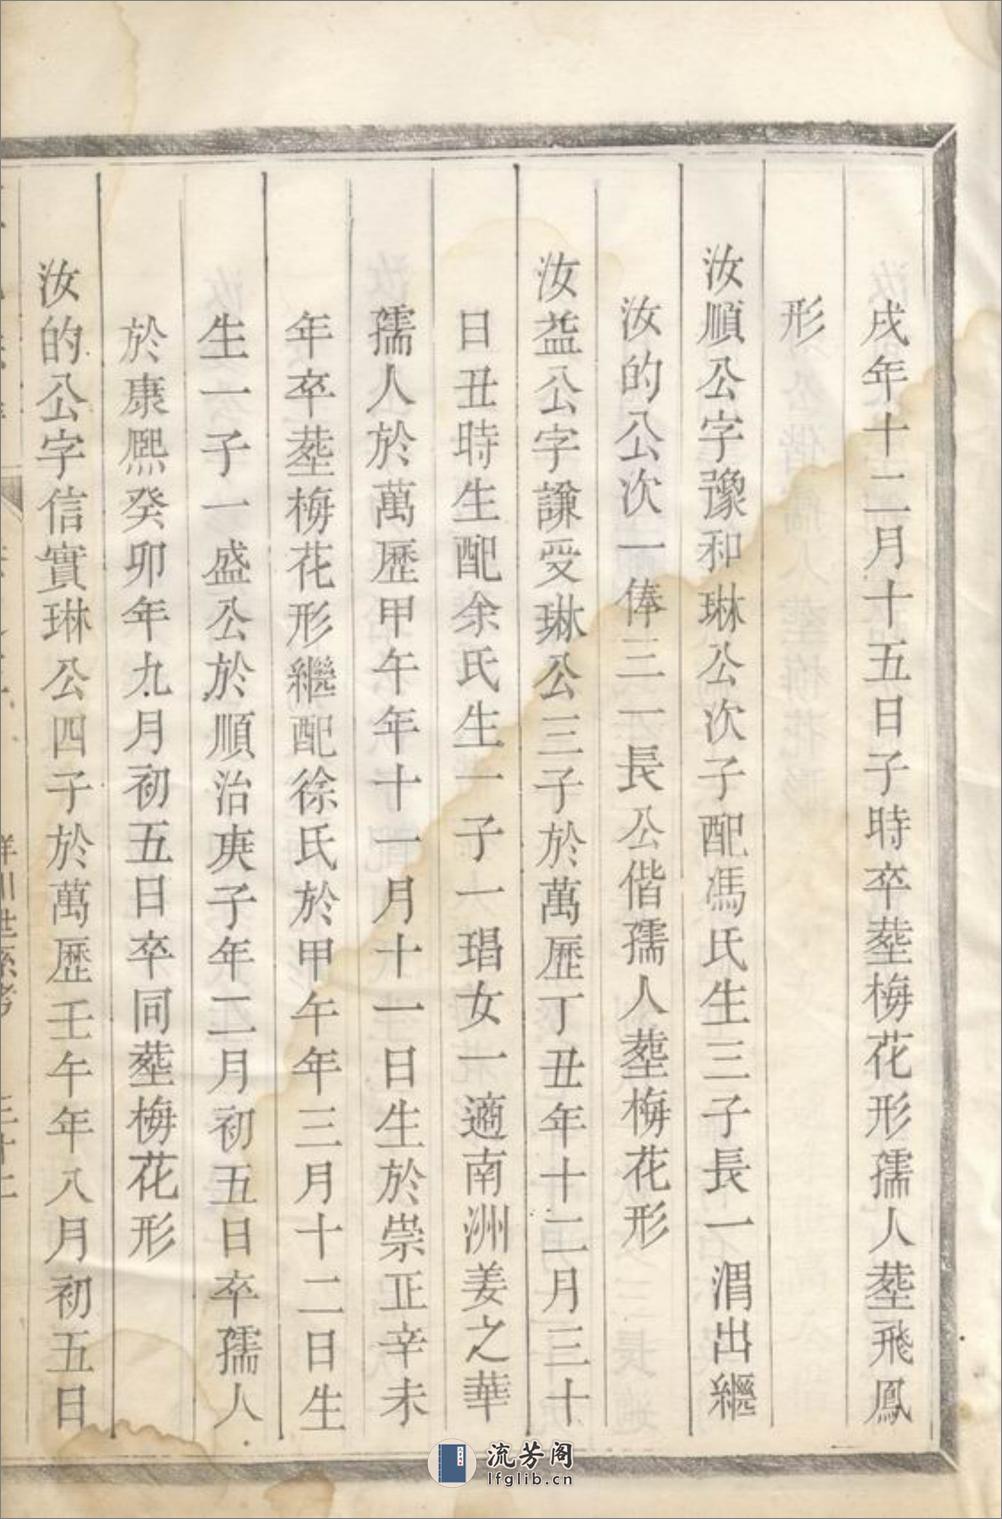 戌年十二月十五日子時卒塟梅花形孺人塟飛鳳
形
汝順公字豫和琳公次子配馮氏生三子長一渭出繼
汝的公次一俸三一長公偕孺人塟梅花形
汝益公字謙受琳公三子於萬歷丁丑年十二月三十
日丑時生配余氏生一子一琩女一適南洲姜之華
孺人於萬歷甲午年十一月十一日生於崇正辛未
年卒塟梅花形繼配徐氏於甲午年三月十二日生
生一子一盛公於順治庚子年二月初五日卒孺人
於康熙癸卯年九月初五日卒同塟梅花形
汝的公字信實琳公四子於萬歷壬午年八月初五日
流芳阁
lfglib.cn